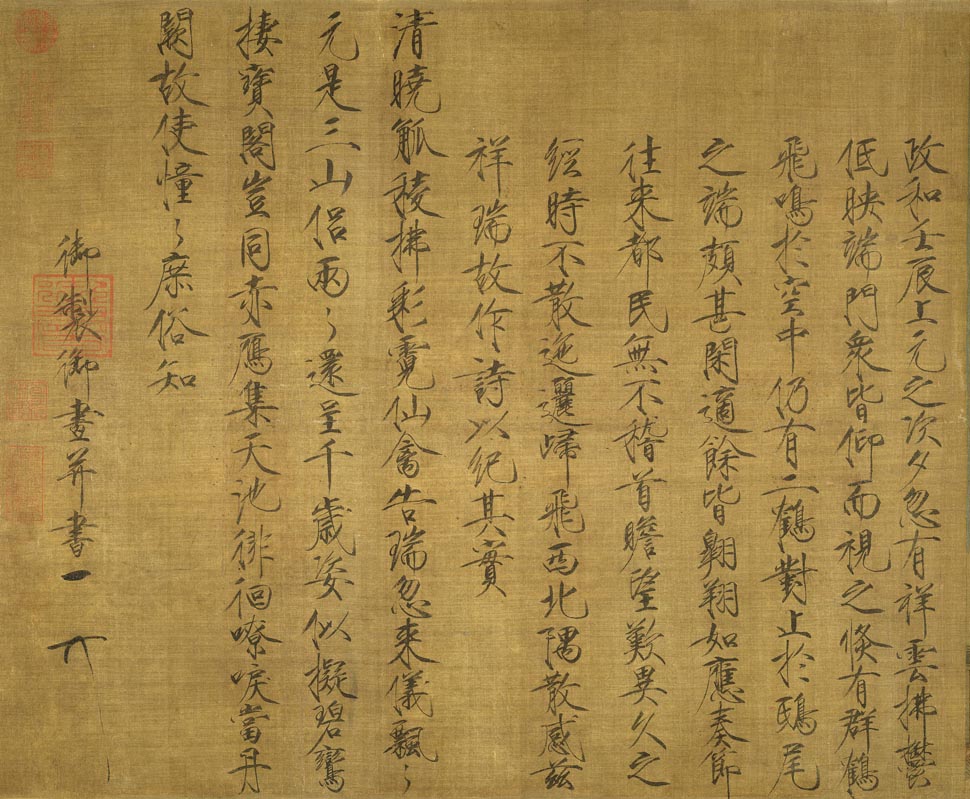 政和壬辰上元之次夕忽有祥雲拂欝
低映端門衆皆仰而視之倐有群鶴
飛鳴於空中仍有二鶴對止於鴟尾
之端頗甚閑適餘皆翺翔如應奏節
往来都民無不稽首瞻望歎異久之
經時不散迤邐歸飛西北隅散感兹
祥瑞故作詩以紀其實
清曉觚稜拂彩霓仙禽告瑞忽来儀飄〻
元是三山侣兩〻還呈千歲姿似擬碧鸞
棲寳閣豈同赤鴈集天池徘徊嘹唳當丹
闕故使憧〻庶俗知
御製御畫并書